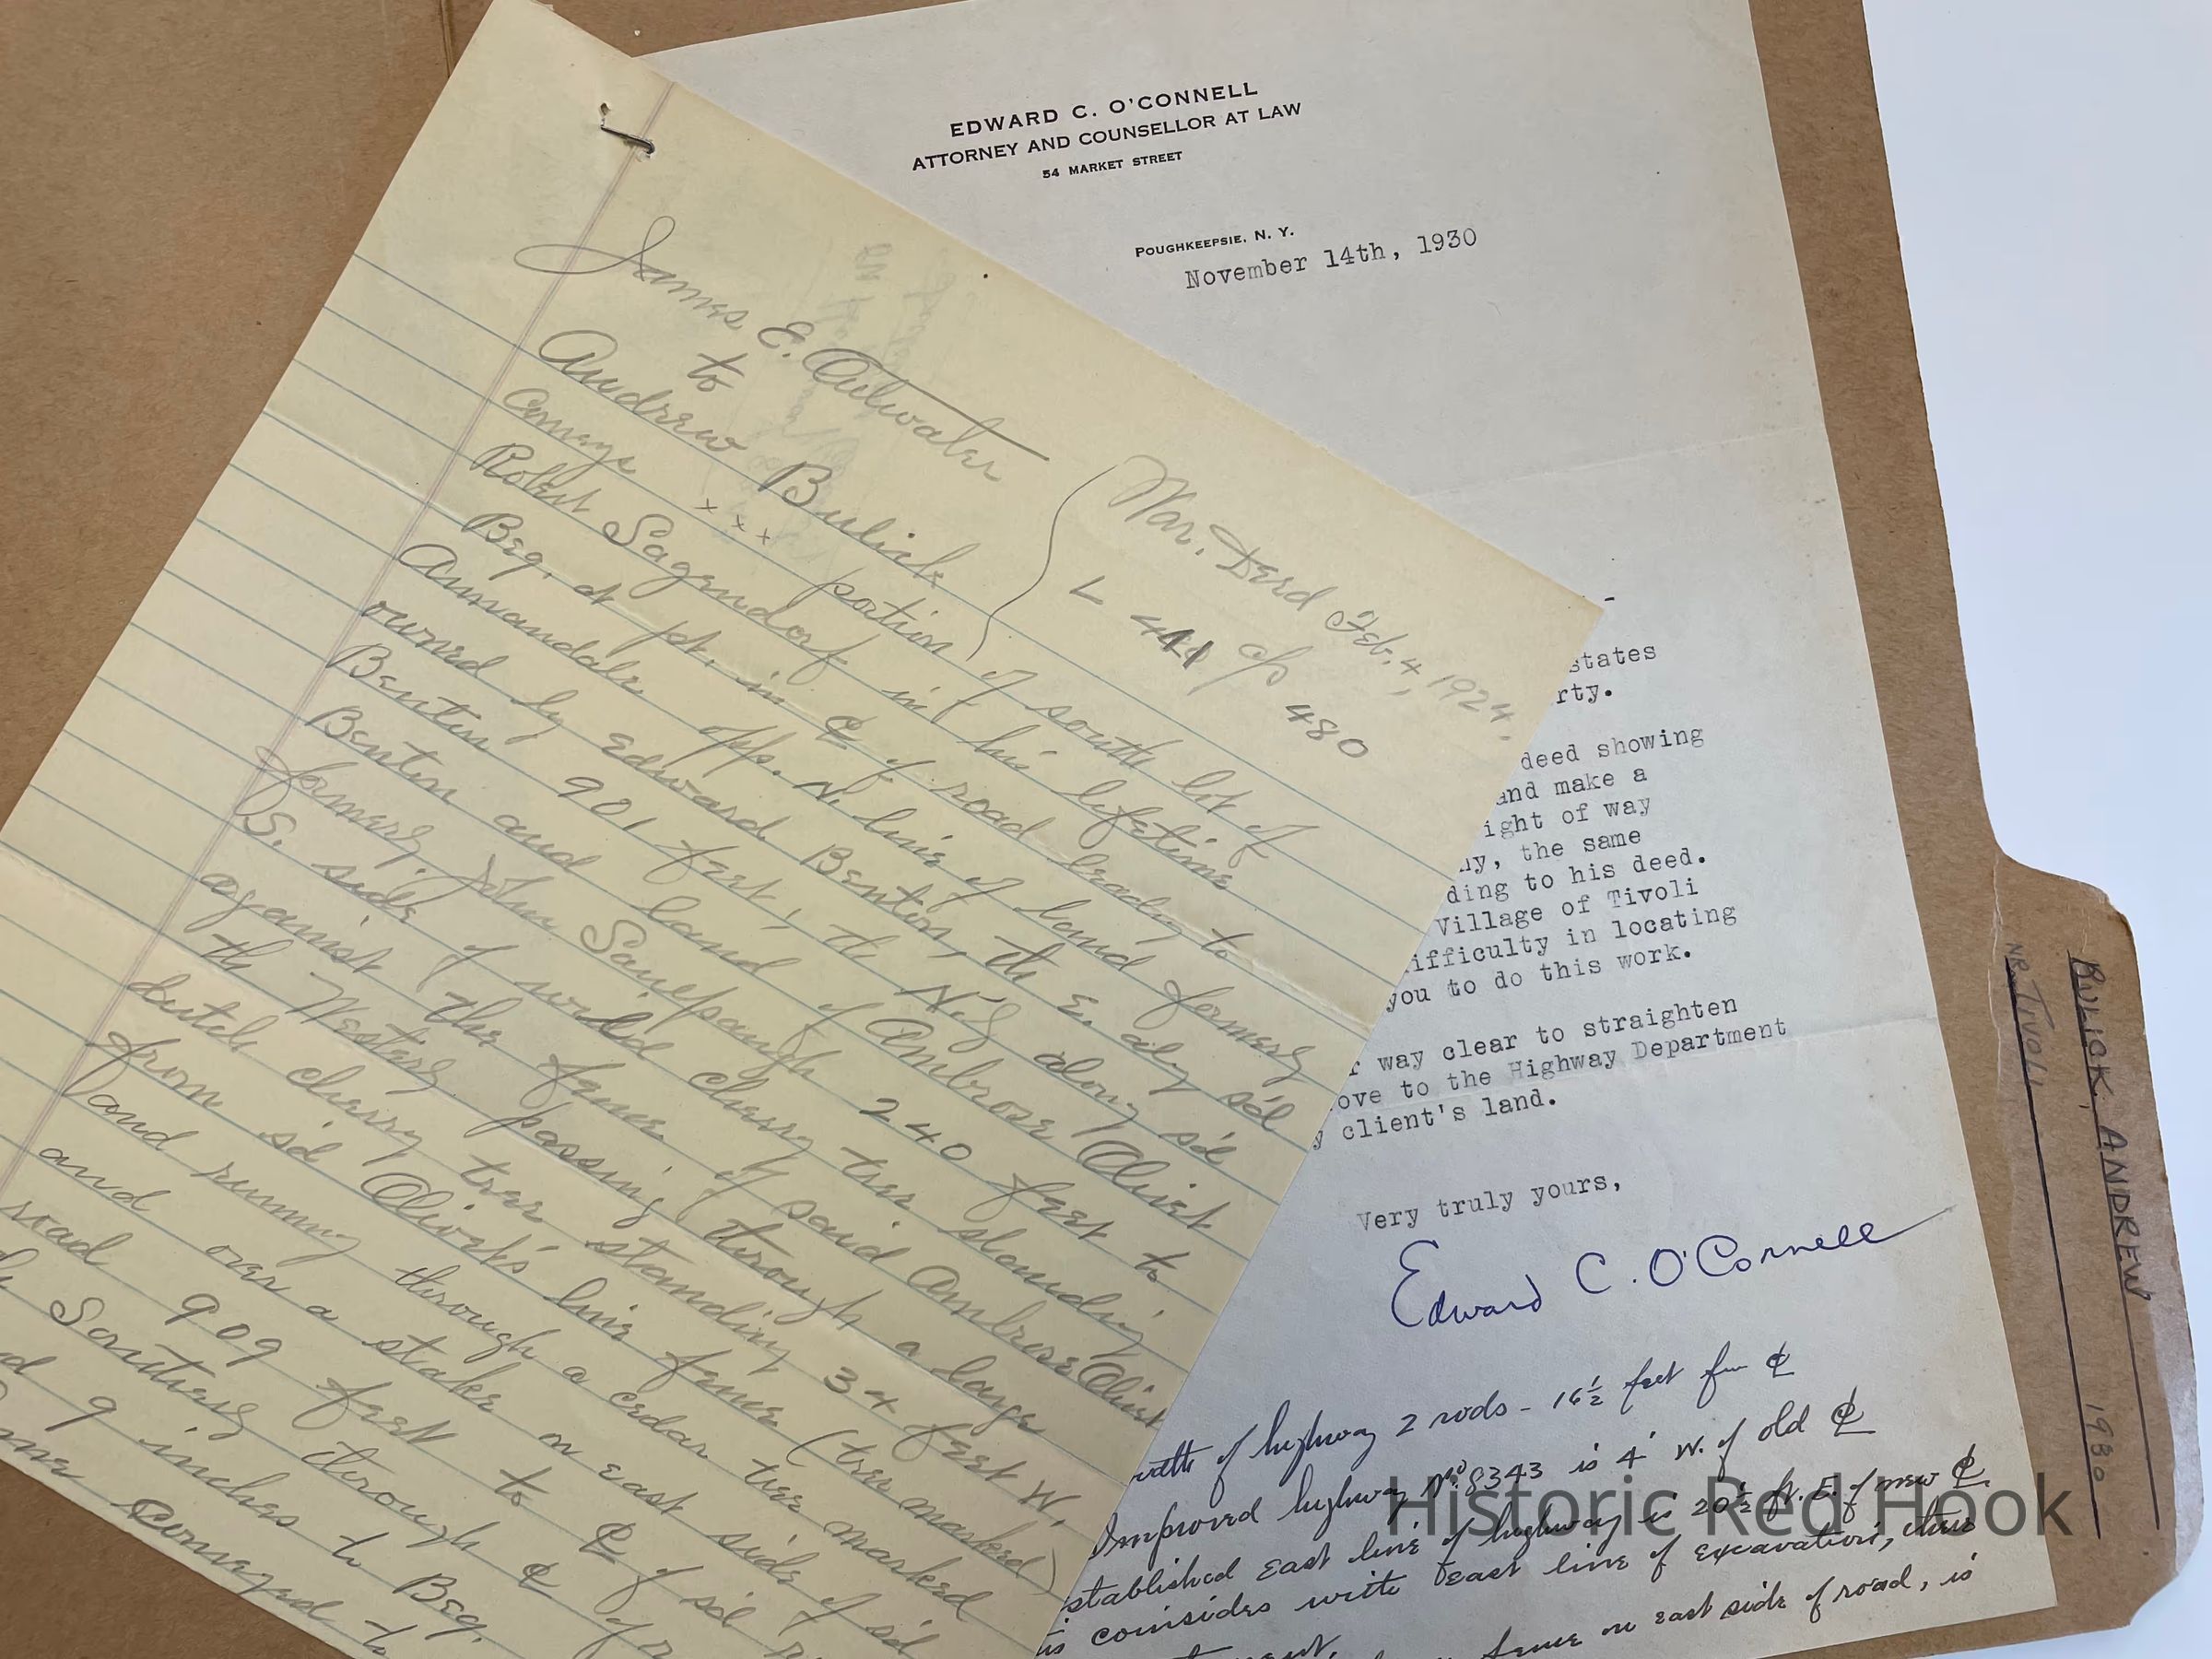 EDWARD C. O'CONNELL
ATTORNEY AND COUNSELLOR AT LAW
54 MARKET STREET
POUGHKEEPSIE, N. Y.
November 14th, 1930
states
rty.
deed showing
and make a
ight of way
ny, the same
ding to his deed.
Village of Tivoli
ifficulty in locating
you to do this work.
r way clear to straighten
ove to the Highway Department
y client's land.
Very truly yours,
Edward C. O'Connell
width of highway 2 rods - 16½ feet fm ⅊
Improved highway No. 8343 is 4' W. of old ⅊
stablished East line of highway is 20½ ft. E. of new ⅊.
is coinsides with East line of excavation,
fence on east side of road, is
James E. Outwater
to
Andrew Bulick
War. Deed Feb. 4, 1924.
L 441 c/p 480
Conveys x x x portion of south lot of
Robert Sagendorf in his lifetime
Beg. at pt. in ⅊ of road leadg to
Annandale opp. N. line of land formerly
owned by Edward Benton, th E. alg s'd
Benton 901 feet, th N'ly along s'd
Benton and land of Ambrose Olivet
formerly John Saulpaugh 240 feet to
S. side of wild cherry tree standing
against the fence of said Ambrose Olivet
th Westerly passing through a large
dutch cherry tree standing 34 feet W.
from s'd Olivet's line fence (tree marked)
and running through a cedar tree marked
and over a stake on east side of s'd
road 909 feet to ⅊ of s'd r
Southerly through ⅊ of r
d 9 inches to Beg.
me conveyed to
BULICK, ANDREW
NR. TIVOLI
1930
Historic Red Hook